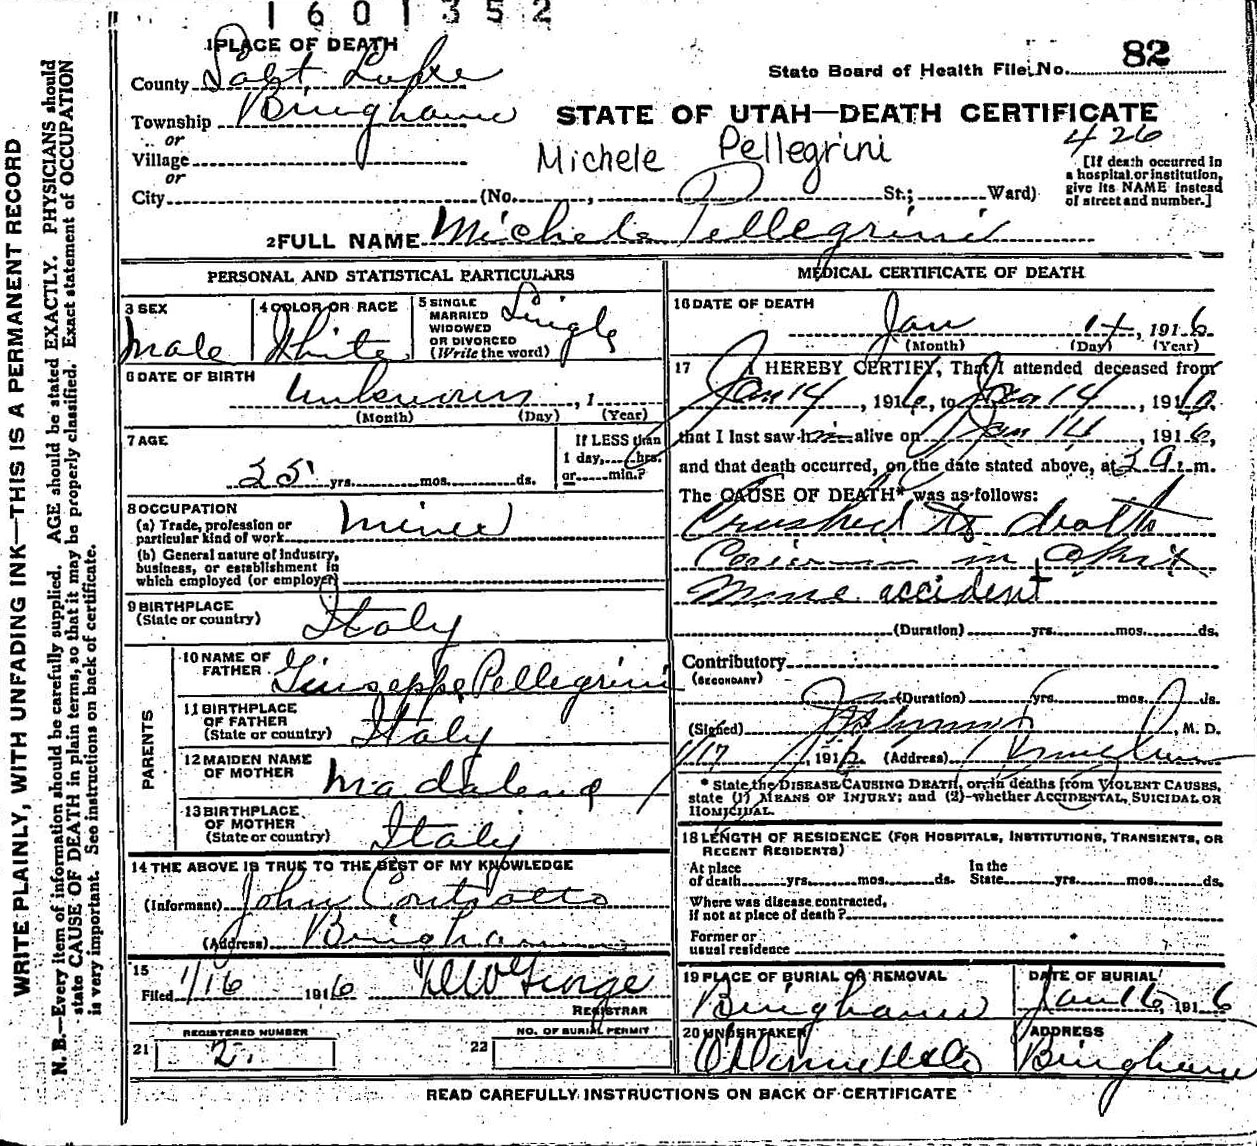 1601352
1 PLACE OF DEATH
County Salt Lake
Township Bingham
or
Village
or
City (No. , St.; Ward)
State Board of Health File No. 82
STATE OF UTAH—DEATH CERTIFICATE
Michele Pellegrini
426
[If death occurred in
a hospital or institution,
give its NAME instead
of street and number.]
2 FULL NAME Michele Pellegrini
PERSONAL AND STATISTICAL PARTICULARS
3 SEX
Male
4 COLOR OR RACE
White
5 SINGLE
MARRIED
WIDOWED
OR DIVORCED
(Write the word)
Single
6 DATE OF BIRTH
Unknown , 1
(Month) (Day) (Year)
7 AGE
25 yrs. mos. ds.
If LESS than
1 day, hrs.
or min.?
8 OCCUPATION
(a) Trade, profession or
particular kind of work Miner
(b) General nature of industry,
business, or establishment in
which employed (or employer)
9 BIRTHPLACE
(State or country) Italy
PARENTS
10 NAME OF
FATHER Giuseppe Pellegrini
11 BIRTHPLACE
OF FATHER
(State or country) Italy
12 MAIDEN NAME
OF MOTHER Madalena
13 BIRTHPLACE
OF MOTHER
(State or country) Italy
14 THE ABOVE IS TRUE TO THE BEST OF MY KNOWLEDGE
(Informant) John Contratto
(Address) Bingham
15
Filed 1/16 1916
George
REGISTRAR
REGISTERED NUMBER
21 2.
NO. OF BURIAL PERMIT
22
MEDICAL CERTIFICATE OF DEATH
16 DATE OF DEATH
Jan 14, 1916
(Month) (Day) (Year)
17 I HEREBY CERTIFY, That I attended deceased from
Jan 14, 1916, to Jan 14, 1916,
that I last saw him alive on Jan 14 1916,
and that death occurred, on the date stated above, at 3 a. m.
The CAUSE OF DEATH* was as follows:
Crushed to death
in
Mine accident
(Duration) yrs. mos. ds.
Contributory
(SECONDARY)
(Duration) yrs. mos. ds.
(Signed) , M. D.
1/17, 1916 (Address) Bingham
* State the DISEASE CAUSING DEATH, or, in deaths from VIOLENT CAUSES,
state (1) MEANS OF INJURY; and (2) whether ACCIDENTAL, SUICIDAL OR
HOMICIDAL.
18 LENGTH OF RESIDENCE (FOR HOSPITALS, INSTITUTIONS, TRANSIENTS, OR
RECENT RESIDENTS)
At place
of death yrs. mos. ds.
In the
State yrs. mos. ds.
Where was disease contracted,
if not at place of death?
Former or
usual residence
19 PLACE OF BURIAL OR REMOVAL
Bingham
DATE OF BURIAL
Jan 16, 1916
20 UNDERTAKER
O'Donnell & Co
ADDRESS
Bingham
READ CAREFULLY INSTRUCTIONS ON BACK OF CERTIFICATE
WRITE PLAINLY, WITH UNFADING INK—THIS IS A PERMANENT RECORD
N. B.—Every item of information should be carefully supplied. AGE should be stated EXACTLY. PHYSICIANS should
state CAUSE OF DEATH in plain terms, so that it may be properly classified. Exact statement of OCCUPATION
is very important. See instructions on back of certificate.